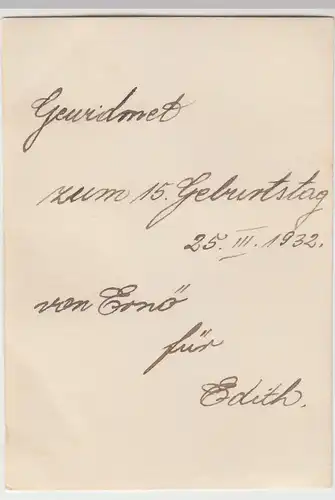 Gewidmet
zum 15. Geburtstag
25. III. 1932.
von Ernö
für
Edith.